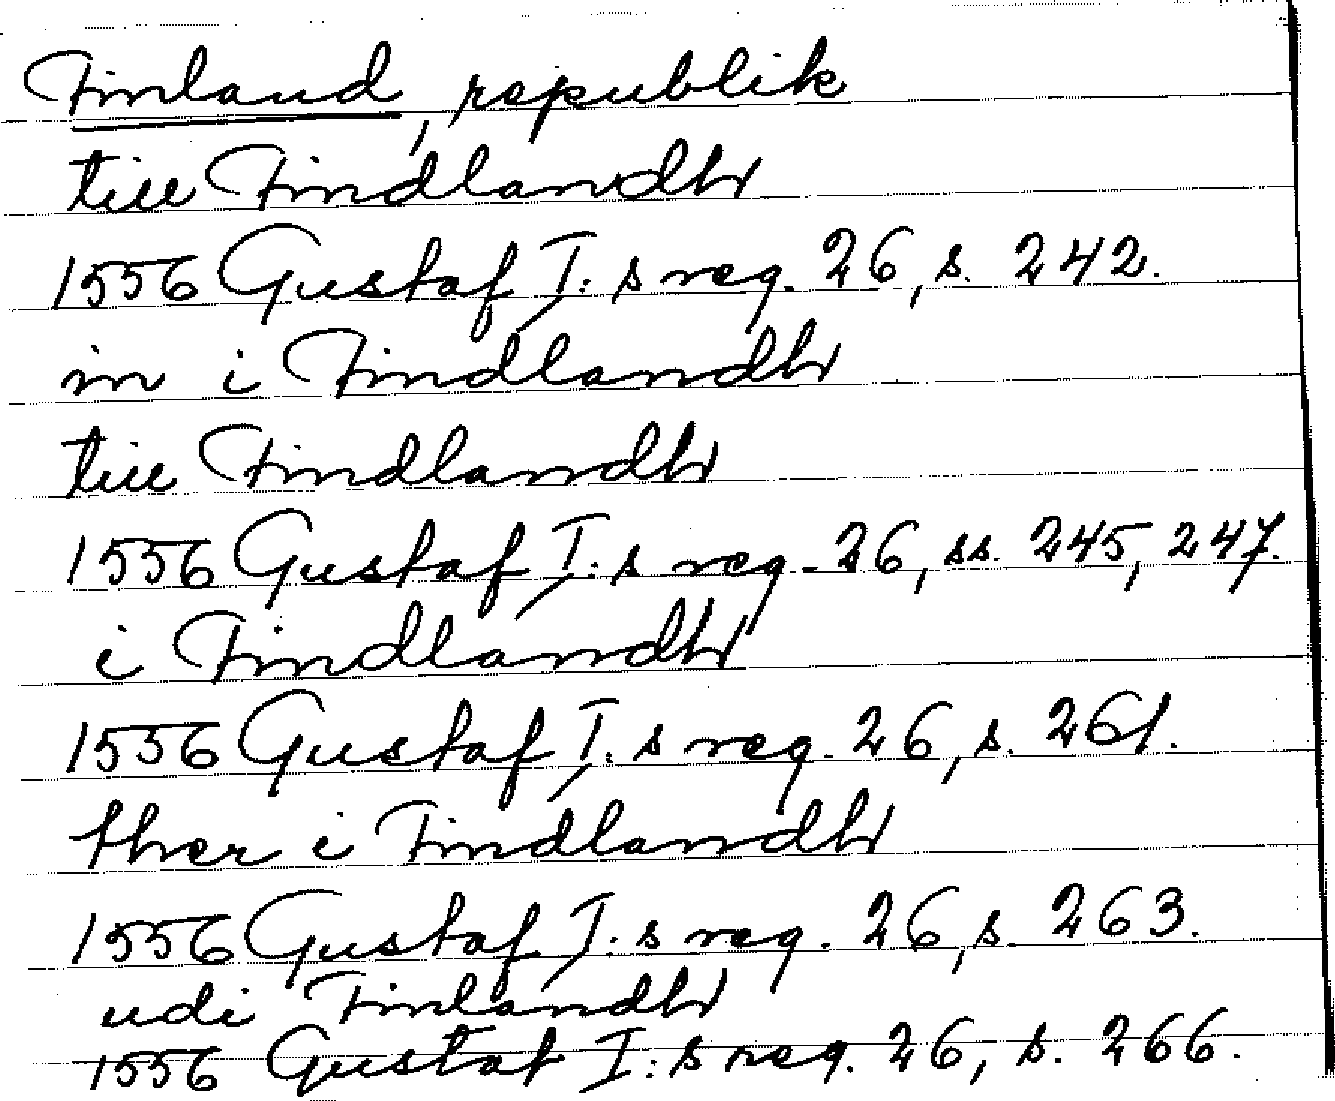 Finland, republik
till Findlandh
1556 Gustaf I:s reg. 26, s. 242.
in i Findlandh
till Findlandh
1556 Gustaf I:s reg. 26, ss. 245, 247.
i Findlandh
1556 Gustaf I:s reg. 26, s. 261.
ther i Findlandh
1556 Gustaf I:s reg. 26, s. 263.
udi Finlandh
1556 Gustaf I:s reg. 26, s. 266.